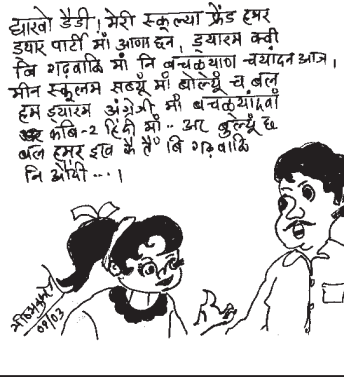 द्याखो डैडी। मेरी स्कूल्या फ्रैंड हमर
ड्यार पार्टी माँ आणा छन, ड्यारम क्वी
बि गढ़वाळि माँ नि बचळ्याण चयांदन आज।
मीन स्कूलम सब्यूँ माँ बोल्यूँ च बल
हम ड्यारम अंग्रेजी माँ बचळ्यांदवाँ
कबि-२ हिंदी माँ.. अर बुल्यूँ छ
बल हमर इख कै तैं बि गढ़वाळि
नि औंदी...।
०९/०३